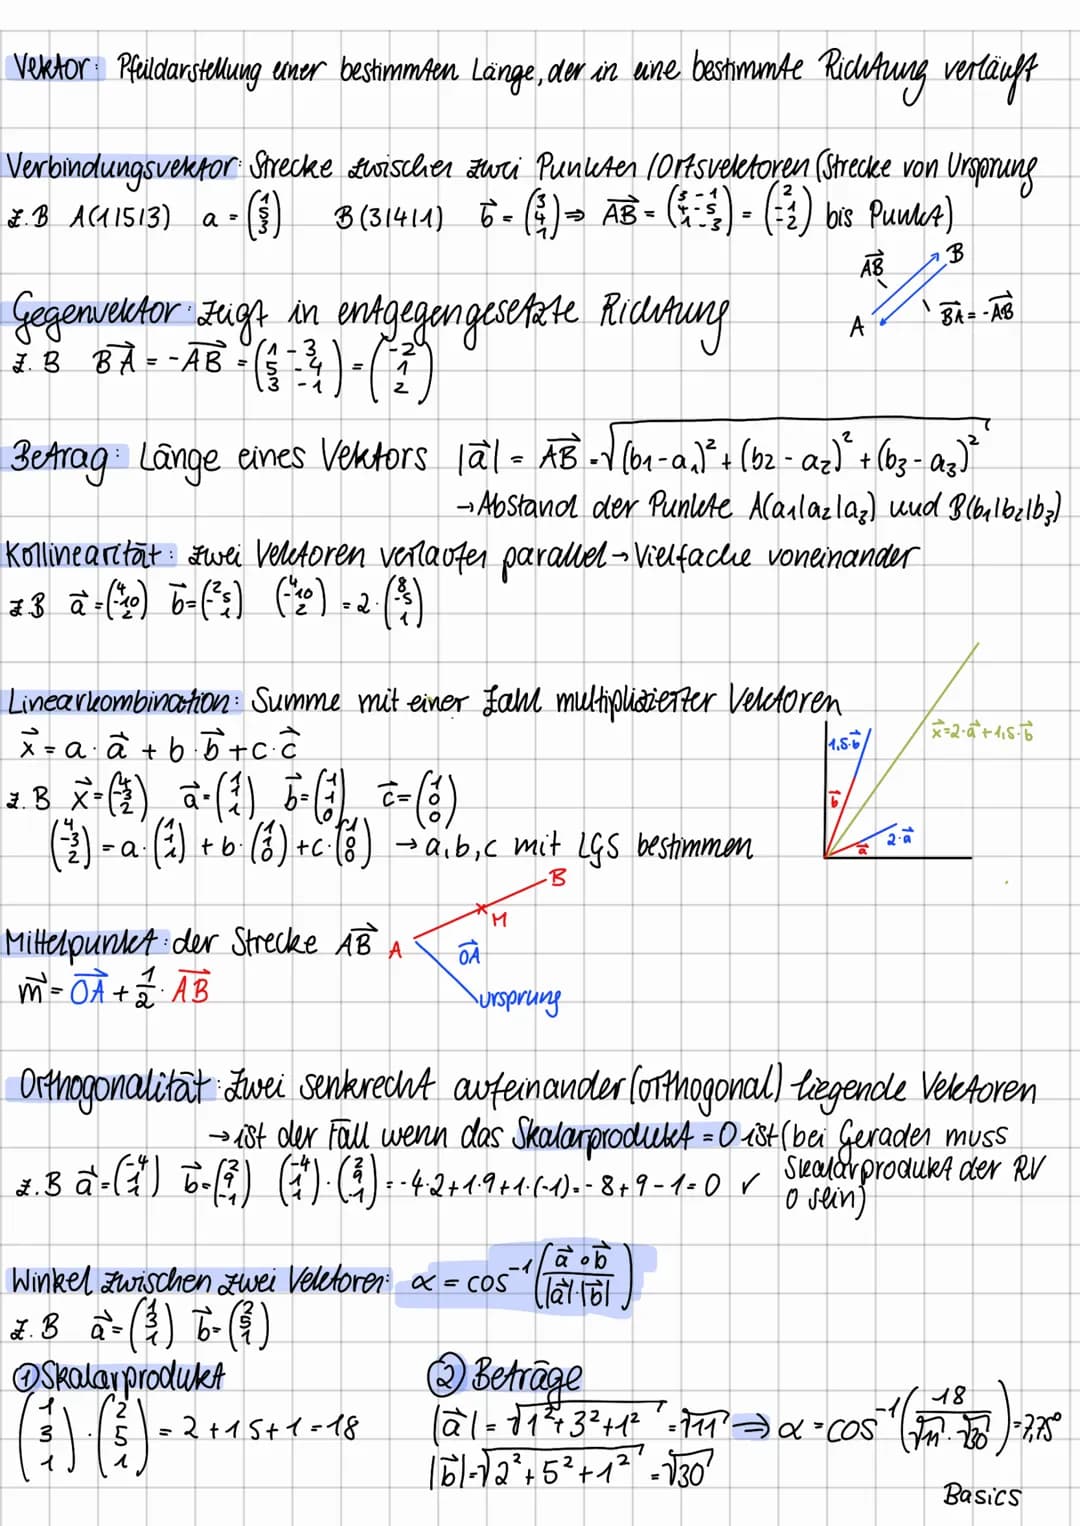 Vektor: Pfeildarstellung einer bestimmten Länge, der in eine bestimmte Richtung verläuft
Verbindungsvektor: Strecke zwischen zwei Punkten / Ortsvektoren (Strecke von Ursprung
z.B A(1|5|3) a = (1 5 3) B(3|4|1) b⃗ = (3 4 1) ⇒ AB⃗ = (3-1 4-5 1-3) = (2 -1 -2) bis Punkt)
AB⃗ B
A BA⃗ = -AB⃗
Gegenvektor: zeigt in entgegengesetzte Richtung
z.B BA⃗ = -AB⃗ = (1-3 5-4 3-1) = (-2 1 2)
Betrag: Länge eines Vektors |a⃗| = AB⃗ = √(b1-a1)² + (b2-a2)² + (b3-a3)²
→ Abstand der Punkte A(a1|a2|a3) und B(b1|b2|b3)
Kollinearität: zwei Vektoren verlaufen parallel → Vielfache voneinander
z.B a⃗ = (4 -10 2) b⃗ = (2 -5 1) (4 -10 2) = 2 · (8 -5 1)
Linearkombination: Summe mit einer Zahl multiplizierter Vektoren
x⃗ = a · a⃗ + b · b⃗ + c · c⃗
z.B x⃗ = (4 -3 2) a⃗ = (1 1 1) b⃗ = (1 1 0) c⃗ = (1 0 0)
(4 -3 2) = a · (1 1 1) + b · (1 1 0) + c · (1 0 0) → a,b,c mit LGS bestimmen
1,5·b⃗ x⃗=2·a⃗+1,5·b⃗
b⃗
a⃗ 2·a⃗
B
M
Mittelpunkt: der Strecke AB⃗ A OA⃗
m⃗ = OA⃗ + 1/2 · AB⃗
Ursprung
Orthogonalität: Zwei senkrecht aufeinander (orthogonal) liegende Vektoren
→ ist der Fall wenn das Skalarprodukt = 0 ist (bei Geraden muss
Skalarprodukt der RV
0 sein)
z.B a⃗ = (-4 1 1) b⃗ = (2 9 -1) (-4 1 1) · (2 9 -1) = -4·2+1·9+1·(-1) = -8+9-1=0 ✓
Winkel zwischen zwei Vektoren: α = cos⁻¹(a⃗ ∘ b⃗ / |a⃗|·|b⃗|)
z.B a⃗ = (1 3 1) b⃗ = (2 5 1)
① Skalarprodukt ② Beträge
(1 3 1) · (2 5 1) = 2+15+1 = 18
|a⃗| = √1²+3²+1² = √11 ⇒ α = cos⁻¹(18 / √11 · √30) = 7,75°
|b⃗| = √2²+5²+1² = √30
Basics